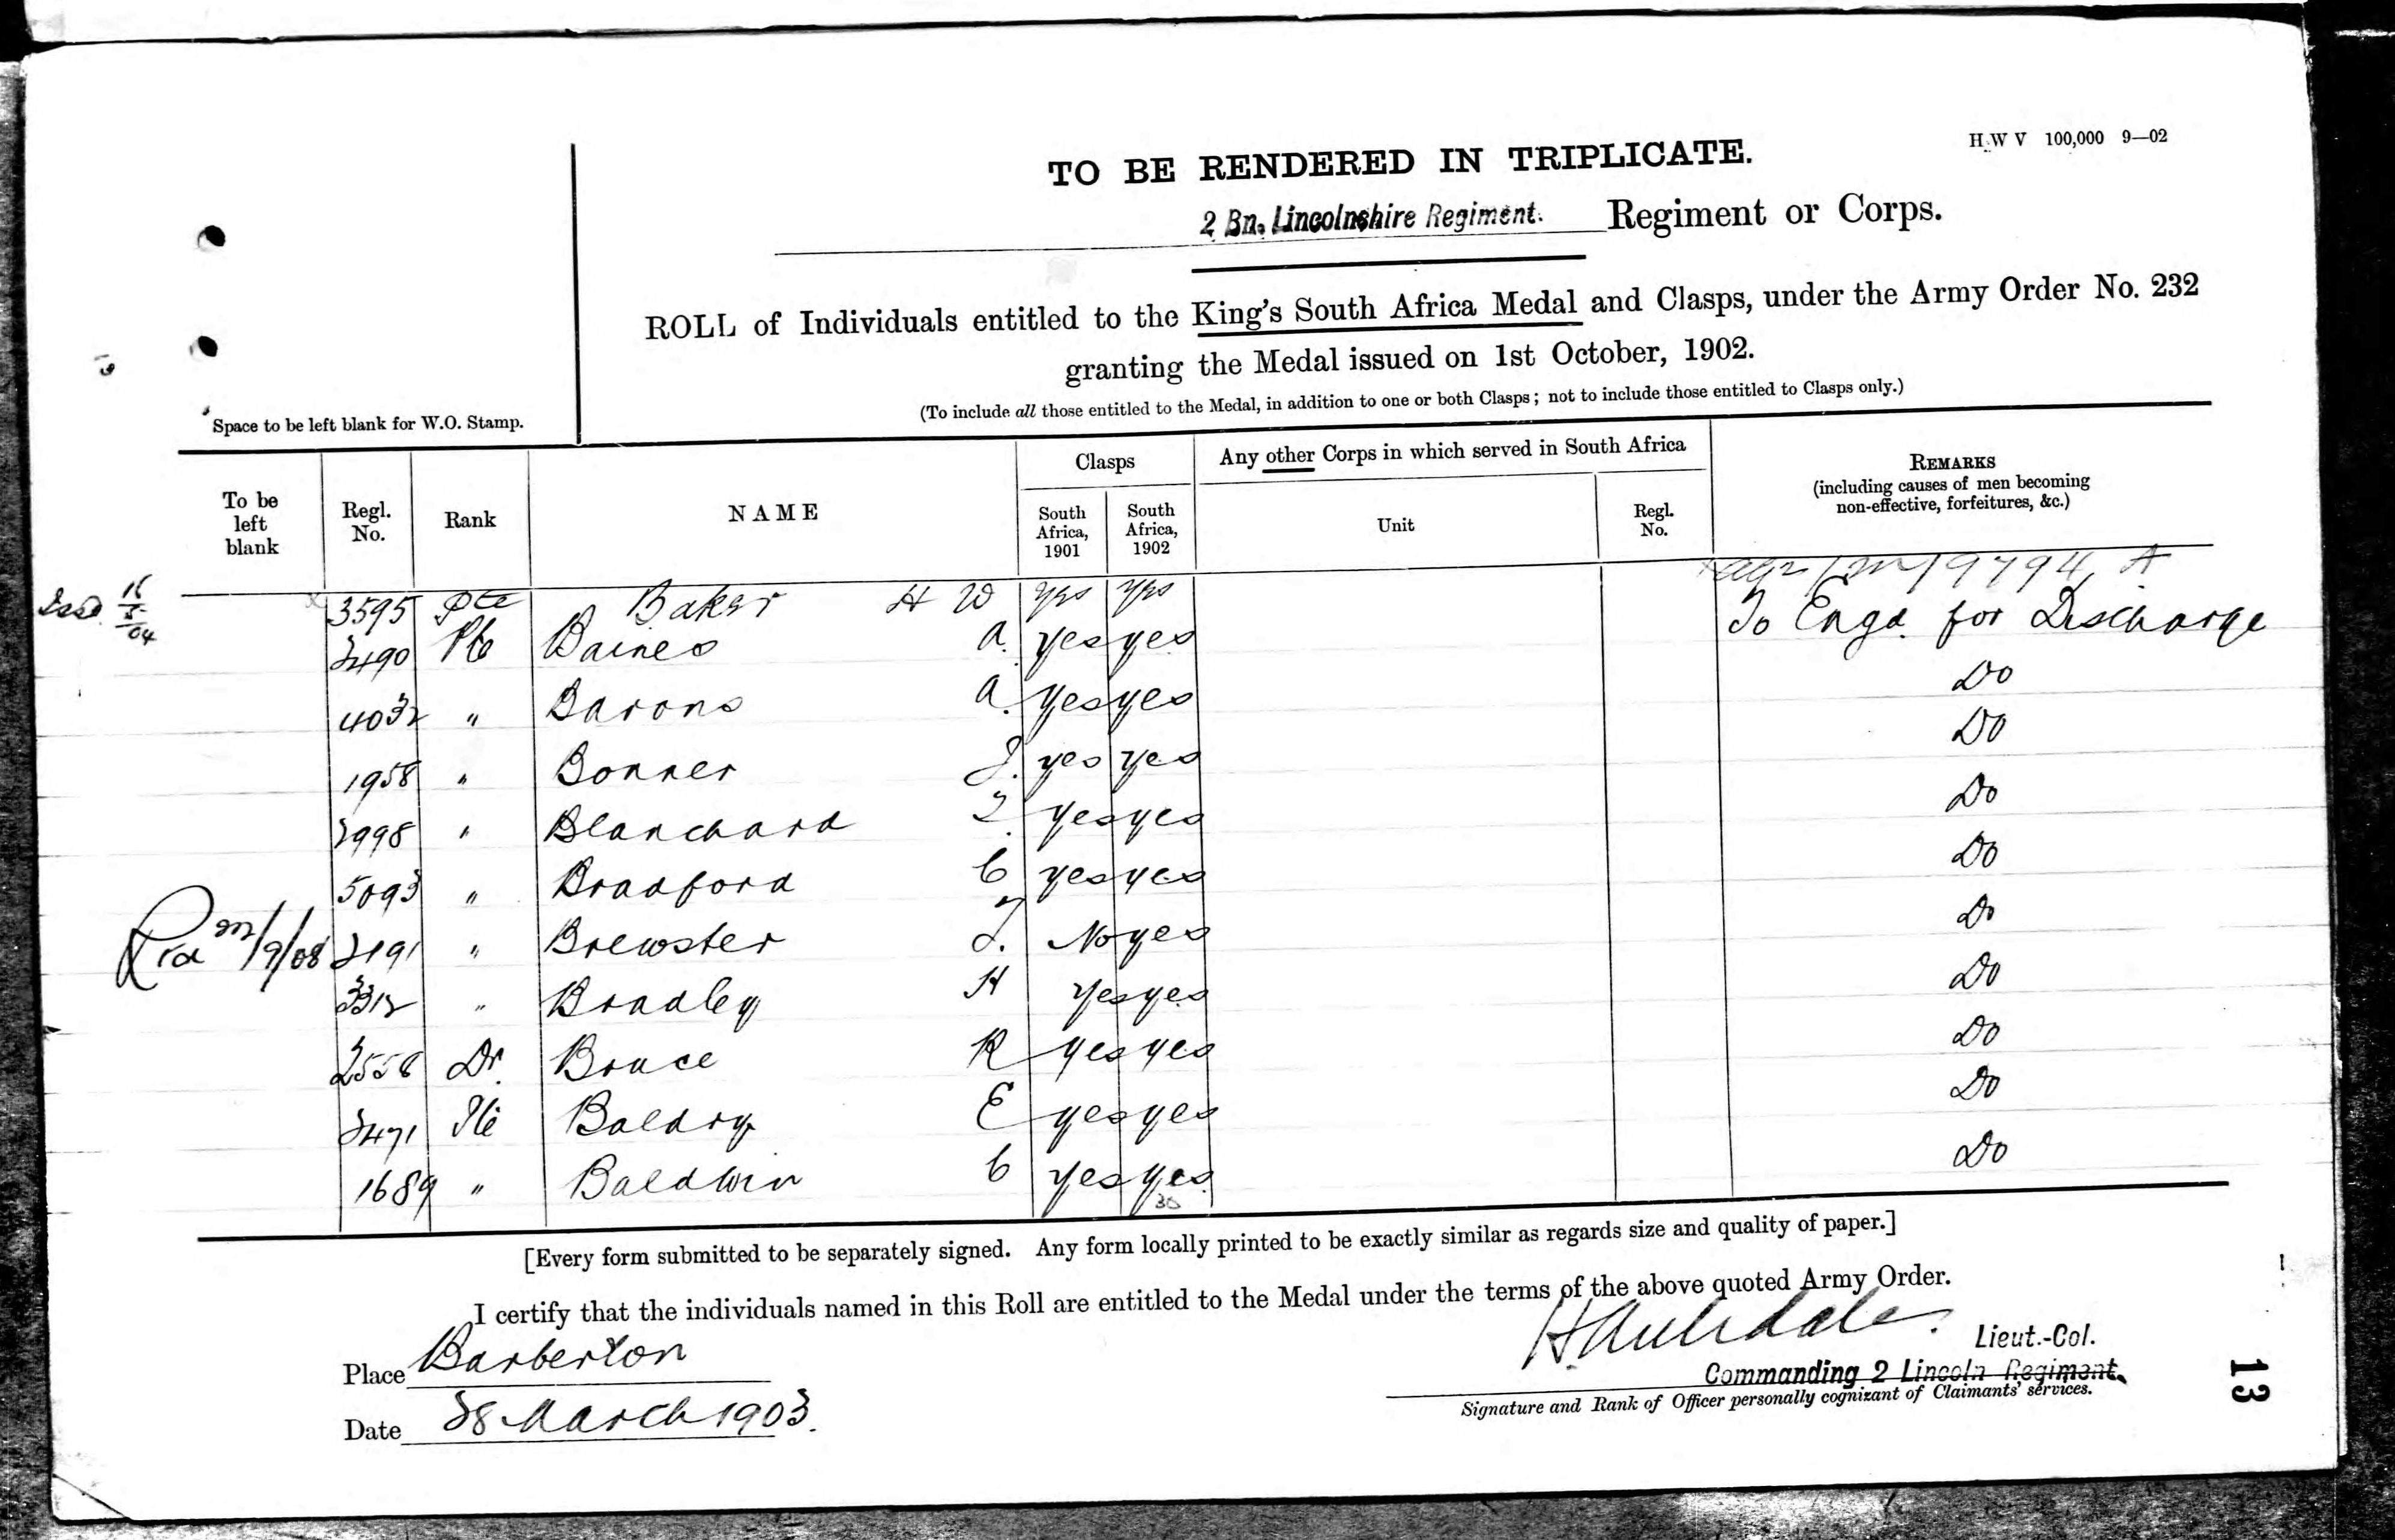 H.W V 100,000 9—02
TO BE RENDERED IN TRIPLICATE.
2 Bn. Lincolnshire Regiment. Regiment or Corps.
ROLL of Individuals entitled to the King's South Africa Medal and Clasps, under the Army Order No. 232
granting the Medal issued on 1st October, 1902.
(To include all those entitled to the Medal, in addition to one or both Clasps; not to include those entitled to Clasps only.)
Space to be left blank for W.O. Stamp.
To be left blank Regl. No. Rank NAME Clasps South Africa, 1901 South Africa, 1902 Any other Corps in which served in South Africa Unit Regl. No. REMARKS (including causes of men becoming non-effective, forfeitures, &c.)
Issd. 16/5/04 3595 Pte Baker H W yes yes 9794
2490 Pte Baines A. yes yes To Engd. for Discharge
4032 " Barons A. yes yes Do
1958 " Bonner J. yes yes Do
2998 " Blanchard yes yes Do
5093 " Bradford C yes yes Do
/9/08 2191 " Brewster No yes Do
3312 " Bradley H yes yes Do
2558 Dr. Bruce R yes yes Do
3471 Pte Baldry E yes yes Do
1689 " Baldwin C yes yes Do
30
[Every form submitted to be separately signed. Any form locally printed to be exactly similar as regards size and quality of paper.]
I certify that the individuals named in this Roll are entitled to the Medal under the terms of the above quoted Army Order.
Place Barberton
Lieut.-Col.
Commanding 2 Lincoln Regiment.
Date 28 March 1903.
Signature and Rank of Officer personally cognizant of Claimants' services.
13